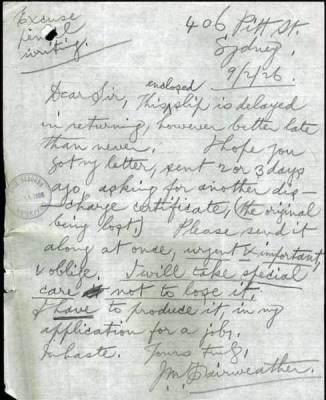 Excuse
pencil
writing.
406, Pitt St.
Sydney.
9/2/26.
enclosed
Dear Sir, This slip is delayed
in returning, however better late
than never. I hope you
got my letter, sent 2 or 3 days
ago, asking for another dis-
charge certificate, (the original
being lost.) Please send it
along at once, urgent & important,
& oblige. I will take special
care not to lose it.
I have to produce it, in my
application for a job.
In haste. Yours Truly,
J.M. Fairweather.